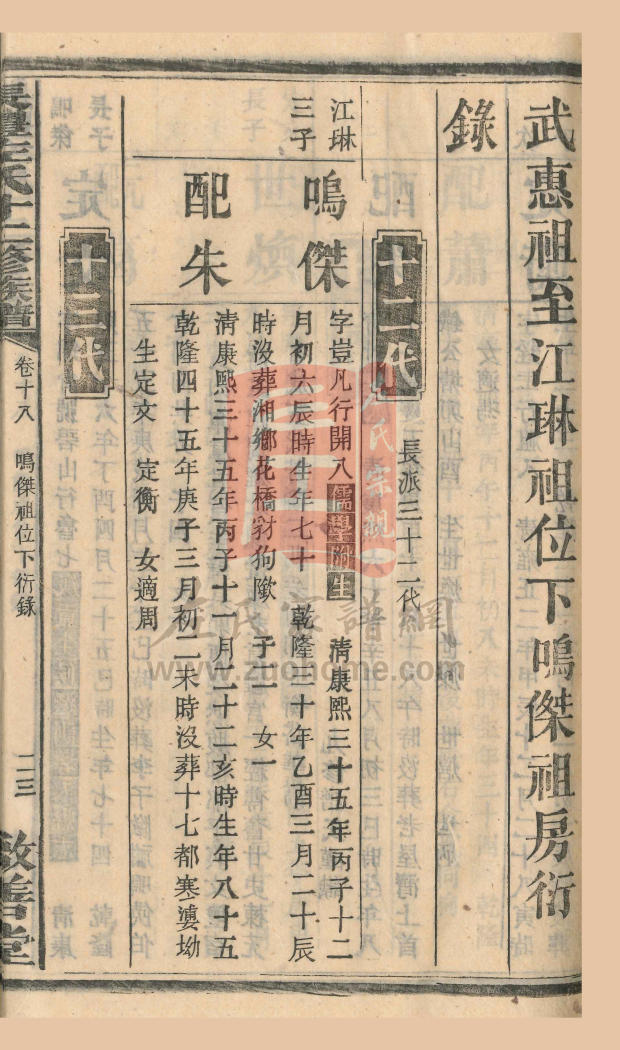 武惠祖至江琳祖位下鳴傑祖房衍
錄
十二代
長派三十二代
江琳
三子
鳴傑
字豈凡行開八儒學附生 清康熙三十五年丙子十二
月初六辰時生年七十 乾隆三十年乙酉三月二十辰
時沒葬湘鄉花橋豺狗歐 子二 女一
配朱
清康熙三十五年丙子十一月二十二亥時生年八十五
乾隆四十五年庚子三月初二未時沒葬十七都寒婆坳
生定文 定衡 女適周
十三代
左氏十二修族譜
卷十八 鳴傑祖位下衍錄
二三
敦善堂
左氏宗親
左氏家譜網
www.zuohome.com